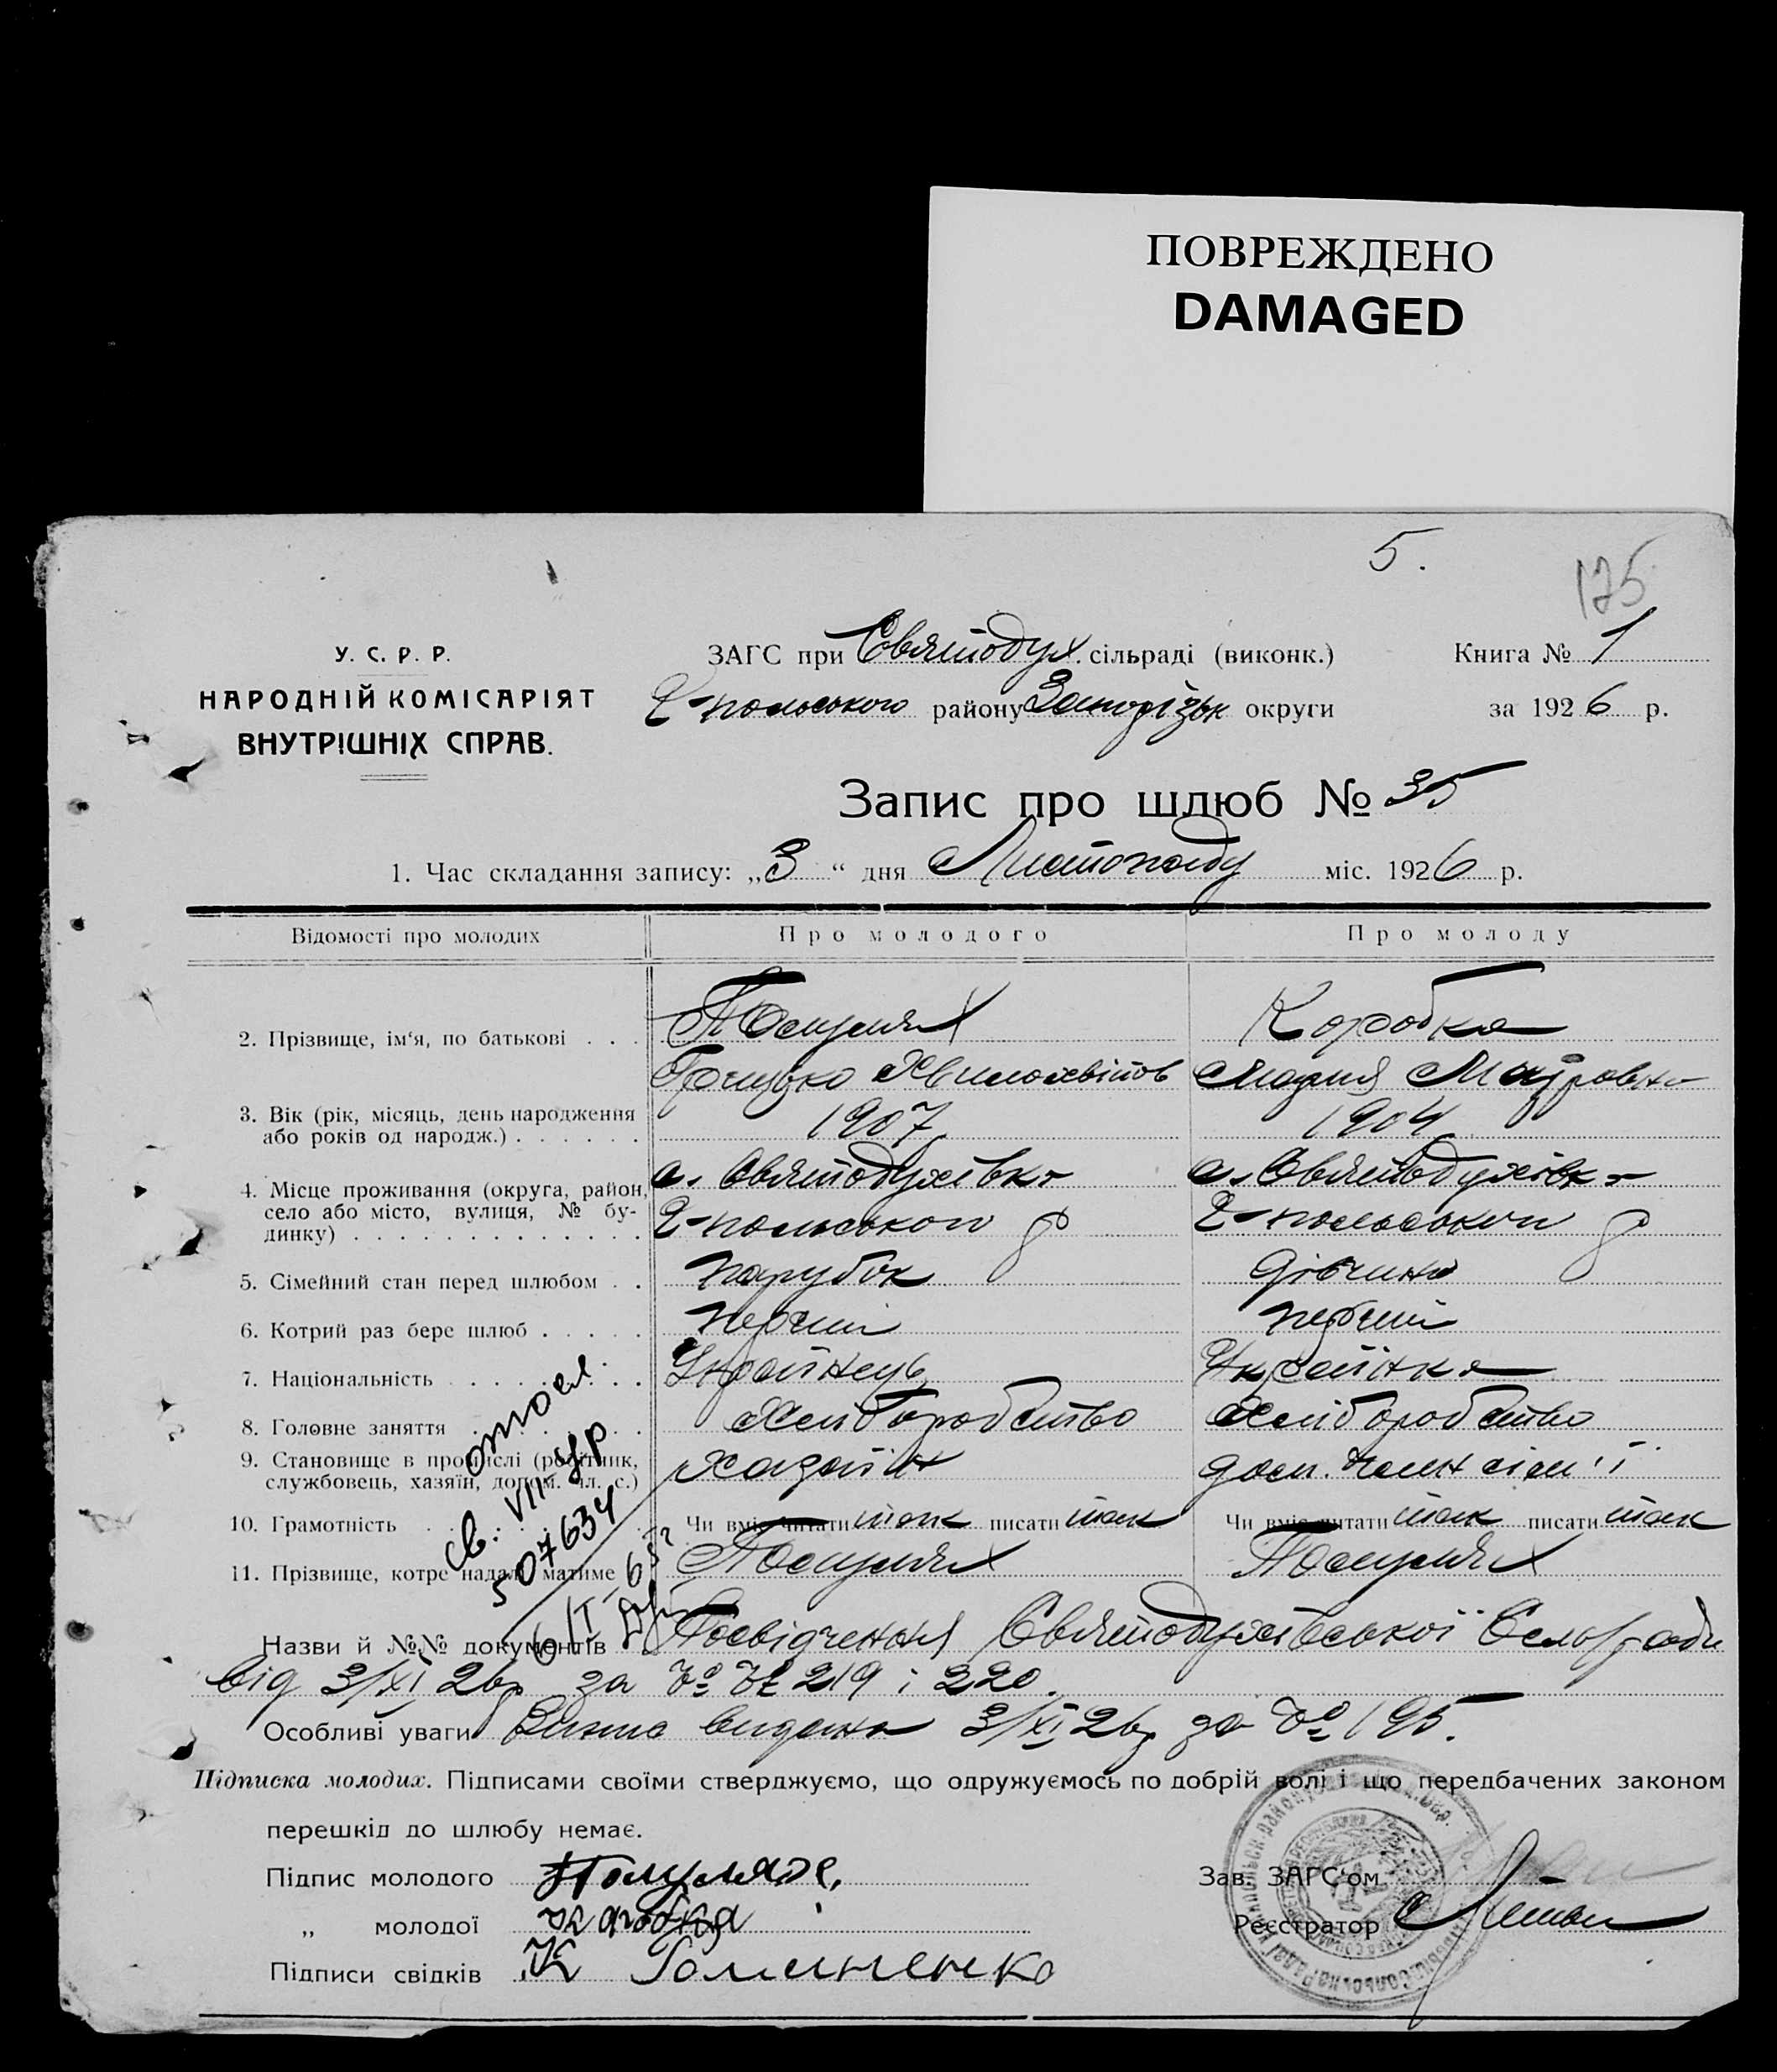 ПОВРЕЖДЕНО
DAMAGED
5.
125
У. С. Р. Р.
НАРОДНІЙ КОМІСАРІЯТ
ВНУТРІШНІХ СПРАВ.
ЗАГС при Святодух. сільраді (виконк.)
Книга № 1
-польського району Запорізьк округи
за 1926 р.
Запис про шлюб № 35
1. Час складання запису: „3“ дня Листопаду міс. 1926 р.
Відомості про молодих
Про молодого
Про молоду
2. Прізвище, ім‘я, по батькові . . .
Посуньях
Коробка
Грицько
Мария
3. Вік (рік, місяць, день народження
або років од народж.) . . . . . .
1907
1904
4. Місце проживання (округа, район,
село або місто, вулиця, № бу-
динку) . . . . . . . . . . . . .
с. Святодухівка
-польського р
с. Святодухівка
-польського р
5. Сімейний стан перед шлюбом . .
парубок
дівчина
6. Котрий раз бере шлюб . . . . .
перший
перший
7. Національність . . . . . . . .
Українець
Українка
8. Головне заняття . . . . . . .
Хліборобство
Хліборобство
9. Становище в промислі (робітник,
службовець, хазяїн, допом. чл. с.)
хазяїн
доп. член сім'ї
10. Грамотність . . . . . . . .
Чи вміє читати так писати так
Чи вміє читати так писати так
11. Прізвище, котре надалі матиме
Посуньях
Посуньях
св. VII
507634
6/I-65
Назви й №№ документів Посвідчення Святодухівської Сельради
від 3/XI 26р за №№ 219 і 220.
Особливі уваги видана 3/XI 26р за № 195.
Підписка молодих. Підписами своїми стверджуємо, що одружуємось по добрій волі і що передбачених законом
перешкід до шлюбу немає.
Підпис молодого
Зав. ЗАГС‘ом
„ молодої
Реєстратор
Підписи свідків